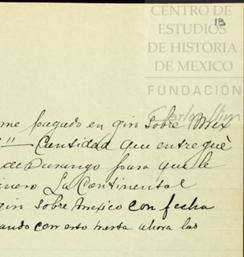 CENTRO DE
ESTUDIOS
DE HISTORIA
DE MEXICO
FUNDACIÓN
Carlos Slim
me pagado en giro sobre Mex
Cantidad que entregué
de Durango para que le
La Continental
giro sobre Mexico con fecha
con esto hasta ahora las